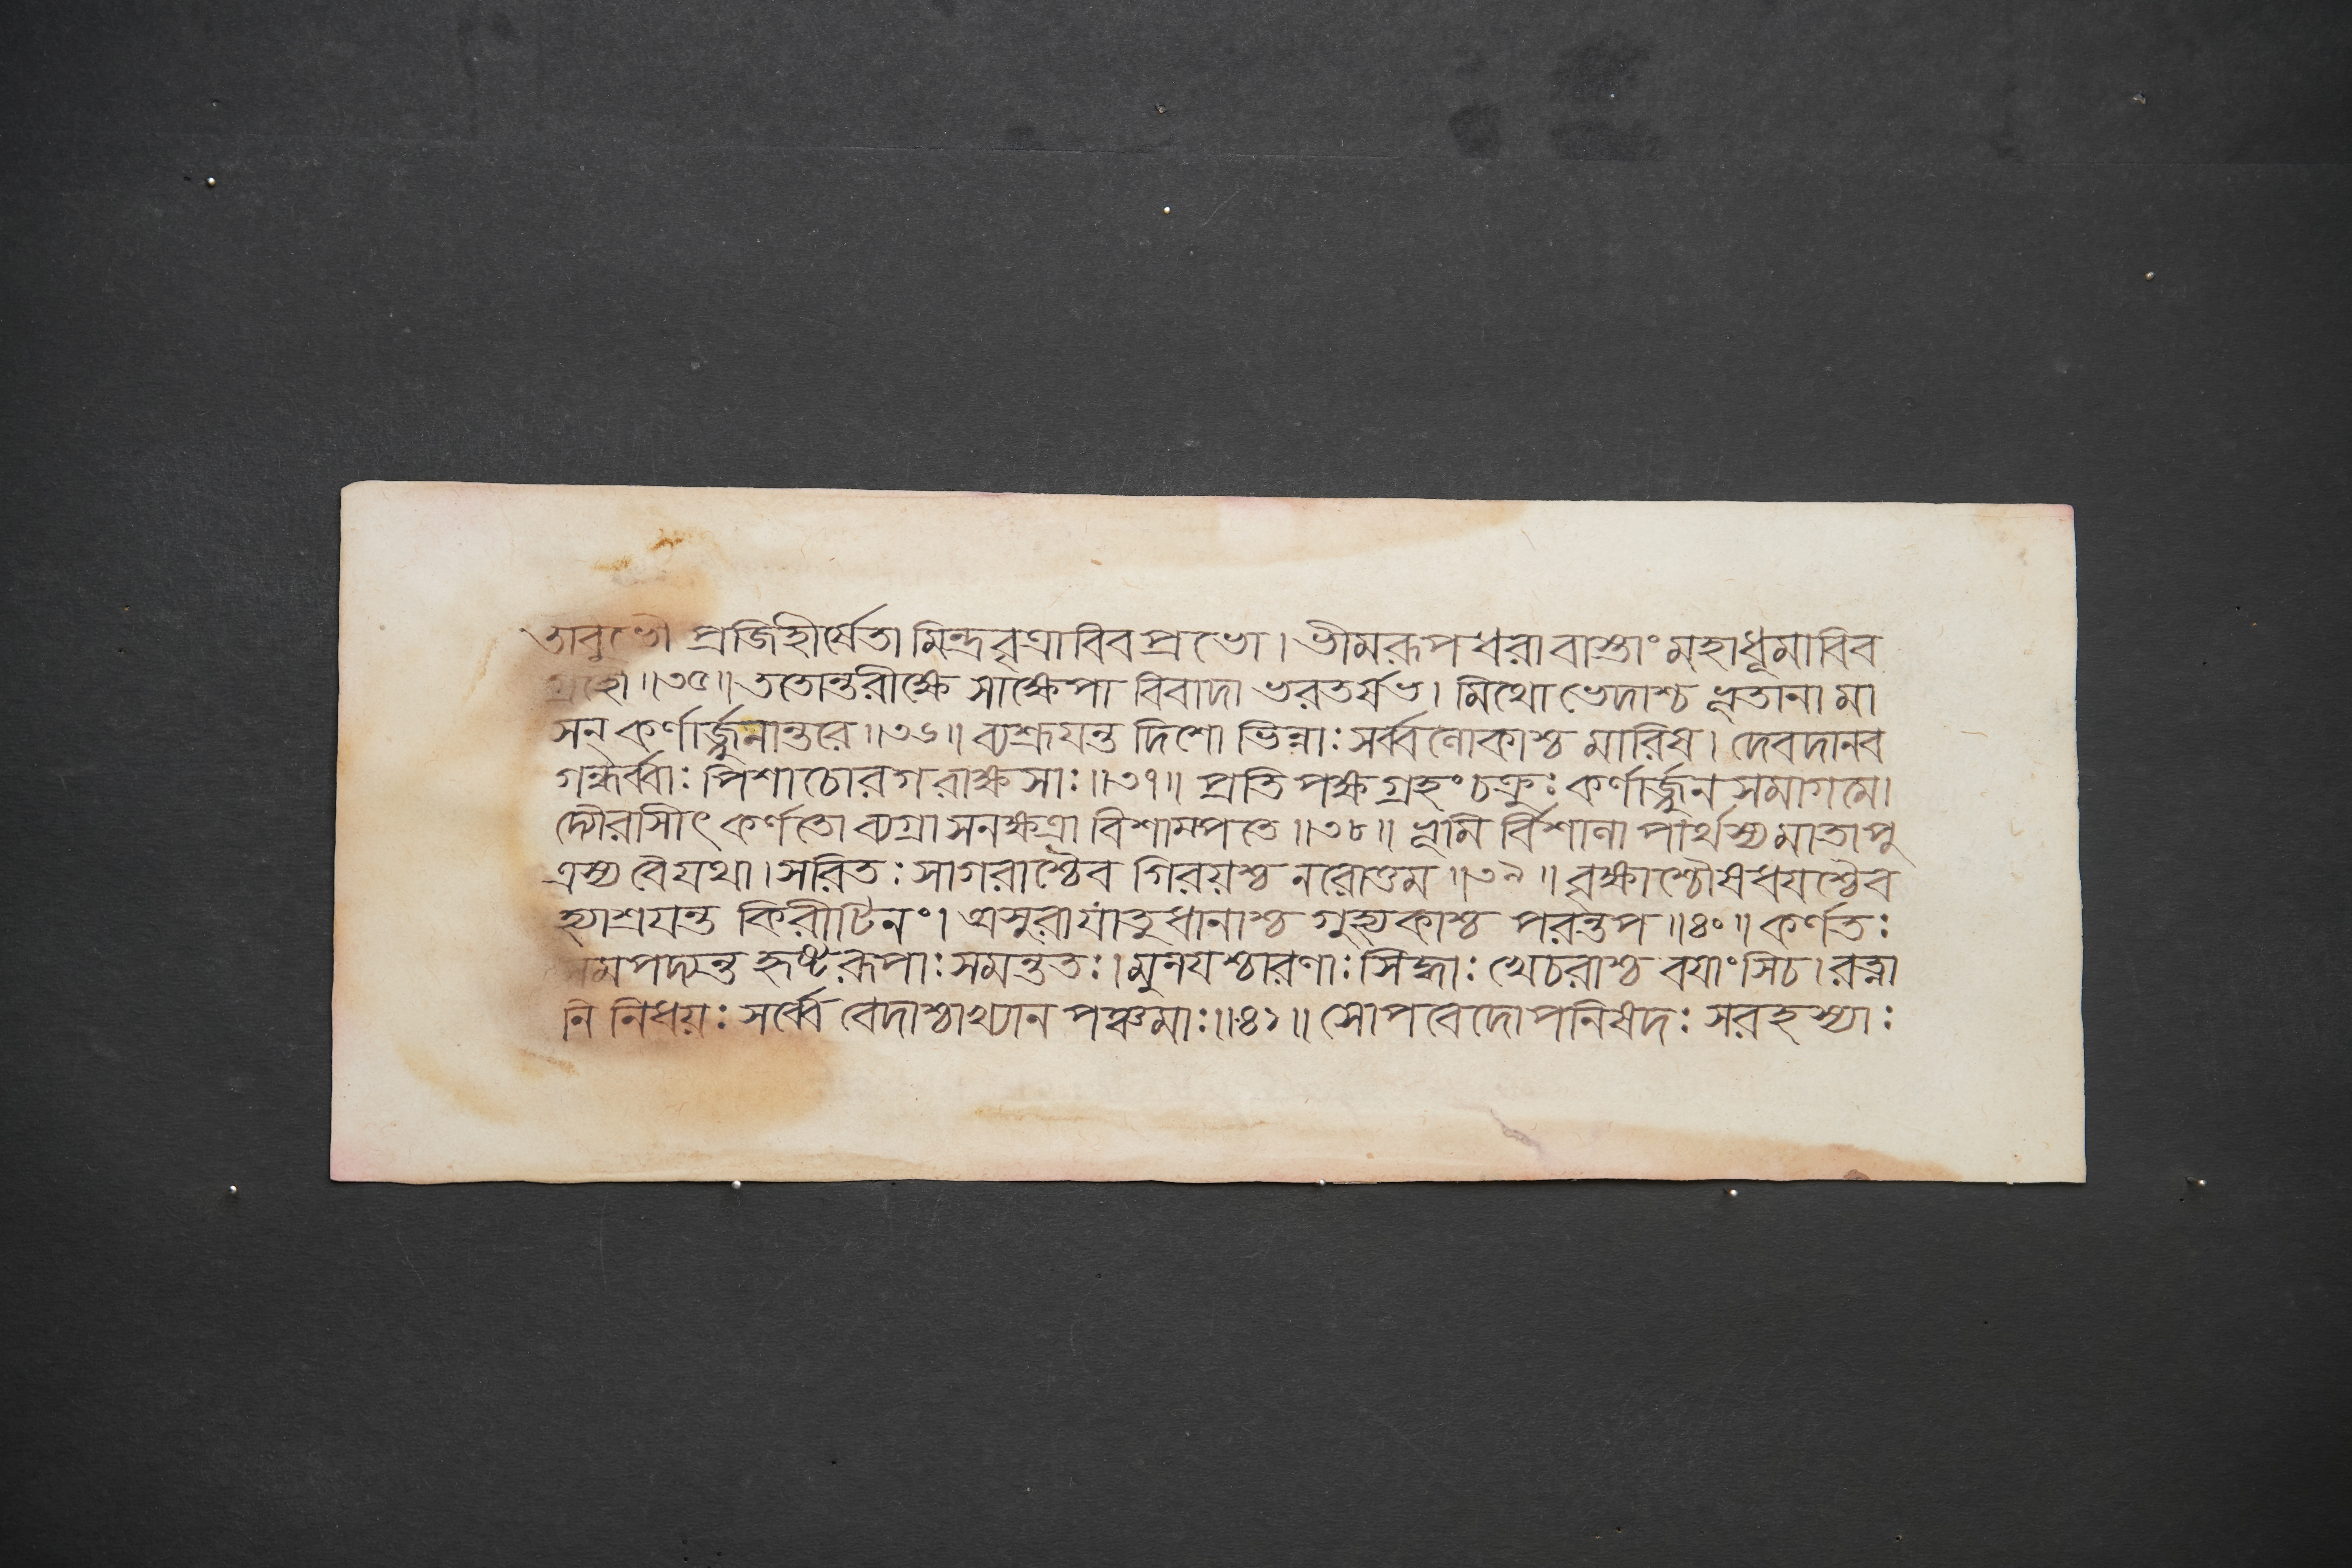 তাবুভৌ প্রজিহীর্ষেতা মিন্দ্রবৃত্রাবিব প্রভো। ভীমরূপ ধরাবাস্তাং মহাধূমাবিব
গ্রহৌ॥৩৫॥ ততোন্তরীক্ষে সাক্ষেপা বিবাদা ভরতর্ষভ। মিথো ভেদাশ্চ ভূতানা মা
সন্ কর্ণার্জ্জুনান্তরে॥৩৬॥ ব্যশ্রূযন্ত দিশো ভিন্নাঃ সর্ব্বলোকাশ্চ মারিষ। দেবদানব
গন্ধর্ব্বাঃ পিশাচোরগ রাক্ষসাঃ॥৩৭॥ প্রতি পক্ষ গ্রহং চক্রুঃ কর্ণার্জ্জুন সমাগমে।
দ্যৌরাসীৎ কর্ণতো ব্যগ্রা সনক্ষত্রা বিশাম্পতে॥৩৮॥ ভূমি র্বিশালা পার্থস্য মাতা পু
ত্রস্য বৈ যথা। সরিতঃ সাগরাশ্চৈব গিরয়শ্চ নরোত্তম॥৩৯॥ বৃক্ষাশ্চৌষধযশ্চৈব
হ্যাশ্রযন্ত কিরীটিনং। অসুরা যাতুধানাশ্চ গুহ্যকাশ্চ পরন্তপ॥৪০॥ কর্ণতঃ
সমপদ্যন্ত হৃষ্টরূপাঃ সমন্ততঃ। মুনযশ্চারণাঃ সিদ্ধাঃ খেচরাশ্চ বযাংসিচ। রত্না
নি নিধয়ঃ সর্ব্বে বেদাশ্চাখ্যান পঞ্চমাঃ॥৪১॥ সোপবেদোপনিষদঃ সরহস্যাঃ